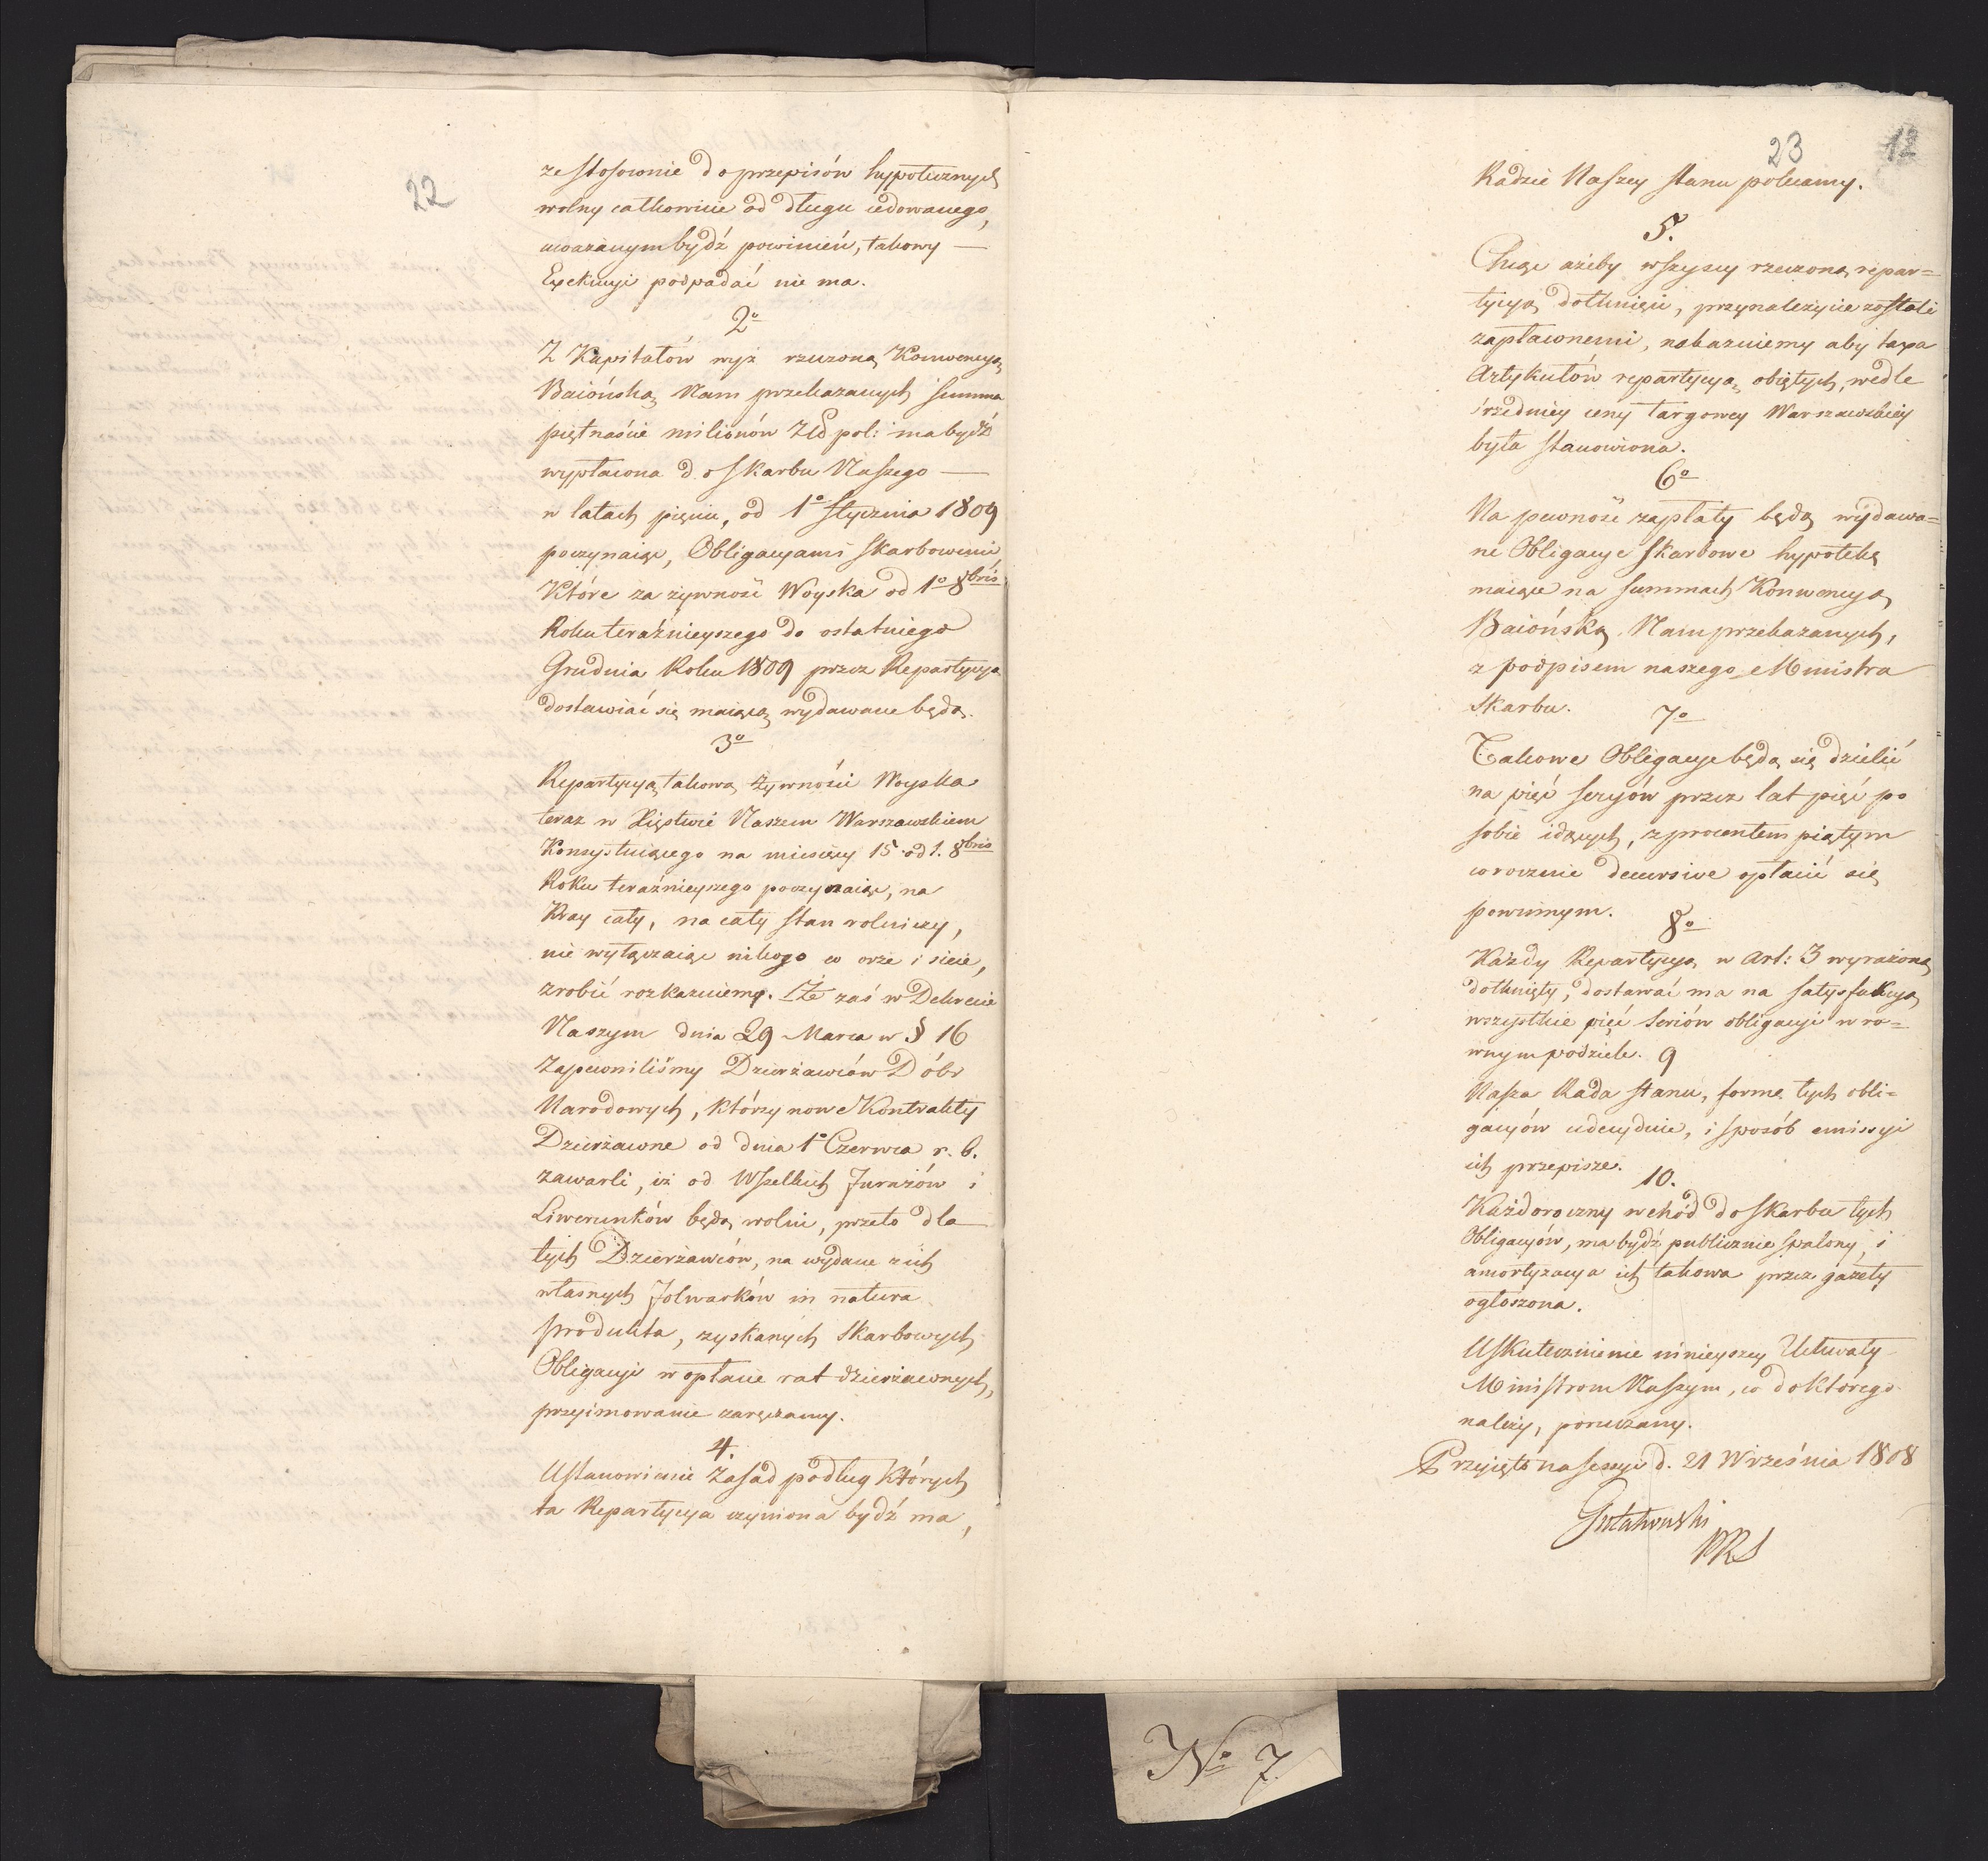 22
ze stosownie do przepisów hypotecznych
wolny całkowicie od długu cedowanego,
uważanym bydź powinień, takowy —
Exekucyi podpadać nie ma.
2o
Z Kapitałów wyż rzeczoną Konwencyą
Baiońską Nam przekazanych summa
piętnaście milionów Zło pol: ma bydź
wypłacona do Skarbu Naszego —
w latach pięciu, od 1o Stycznia 1809
poczynaiąc, Obligacyami Skarbowemi,
Które za żywność Woyska od 1o 8bris
Roku teraźnieyszego do ostatniego
Grudnia Roku 1809 przez Repartycyą
dostawiać się maiącą wydawane będą.
3o
Repartycyą takową żywności Woyska
teraz w Xięstwie Naszem Warszawskiem
Konsystuiącego na miesięcy 15 od 1. 8bris
Roku teraźnieyszego poczynaiąc, na
Kray cały, na cały stan rolniczy,
nie wyłączaiąc nikogo co orze i sieie,
zrobić rozkazuiemy. Że zaś w Dekrecie
Naszym dnia 29 Marca w § 16
Zapewniliśmy Dzierżawców Dóbr
Narodowych, którzy nowe Kontrakty
Dzierżawne od dnia 1o Czerwca r. b.
zawarli, iż od Wszelkich Furażów i
Liwerunków będą wolni, przeto dla
tych Dzierżawców, na wydane z ich
własnych folwarków in natura
produkta, zyskanych Skarbowych
Obligacyi w opłacie rat dzierżawnych,
przyimowanie zaręczamy.
4.
Ustanowienie Zasad podług Których
ta Repartycya czyniona bydź ma,
23
12
Radzie Naszey stanu polecamy.
5.
Chcąc ażeby wszyscy rzeczoną repar=
tycyą dotknięci, przynależycie zostali
zapłaconemi, nakazuiemy aby taxa
Artykułów repartycyą obiętych, wedle
średniey ceny targowey Warszawskiey
była stanowiona.
6o
Na pewność zapłaty będą wydawa=
ne Obligacye Skarbowe hypotekę
maiące na summach Konwencyą
Baiońską Nam przekazanych,
z podpisem naszego Ministra
Skarbu.
7o
Takowe Obligacye będą się dzielić
na pięć seryów przez lat pięć po
sobie idących, z procentem piątym
corocznie decursive opłacić się
powinnym.
8o
Każdy Repartycyą w Art: 3 wyrażoną
dotknięty, dostawać ma na satysfakcyą
wszystkie pięć Seriów obligacyi w ro=
wnym podziele.
9
Nasza Rada stanu, formę tych obli=
gacyów udecyduie, i sposób emissyi
ich przepisze.
10.
Każdoroczny wchód do Skarbu tych
Obligacyów, ma bydź publicznie spalony, i
amortyzacya ich takowa przez gazety
ogłoszona.
Uskutecznienie ninieyszey Uchwały
Ministrom Naszym, co do którego
należy, poruczamy.
Przyięto na sessyi d. 21 Września 1808
Gutakowski
PRS
No 7.